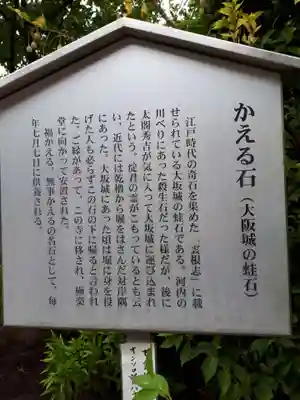 かえる石(大阪城の蛙石)
江戸時代の奇石を集めた「雲根志」に載
せられている大坂城の蛙石である。河内の
川べりにあった殺生石だった様だが、後に
太閤秀吉が気に入って大坂城に運び込まれ
たという。淀君の霊がこもっているとも云
い、近代には乾櫓から堀をはさんだ対岸隅
にあった。大坂城にあった頃は堀に身を投
げた人も必らずこの石の下に帰ると言われ
た。ご縁があって、この寺に移され、極楽
堂に向かって安置された。
福かえる、無事かえるの名石として、毎
年七月七日に供養される。